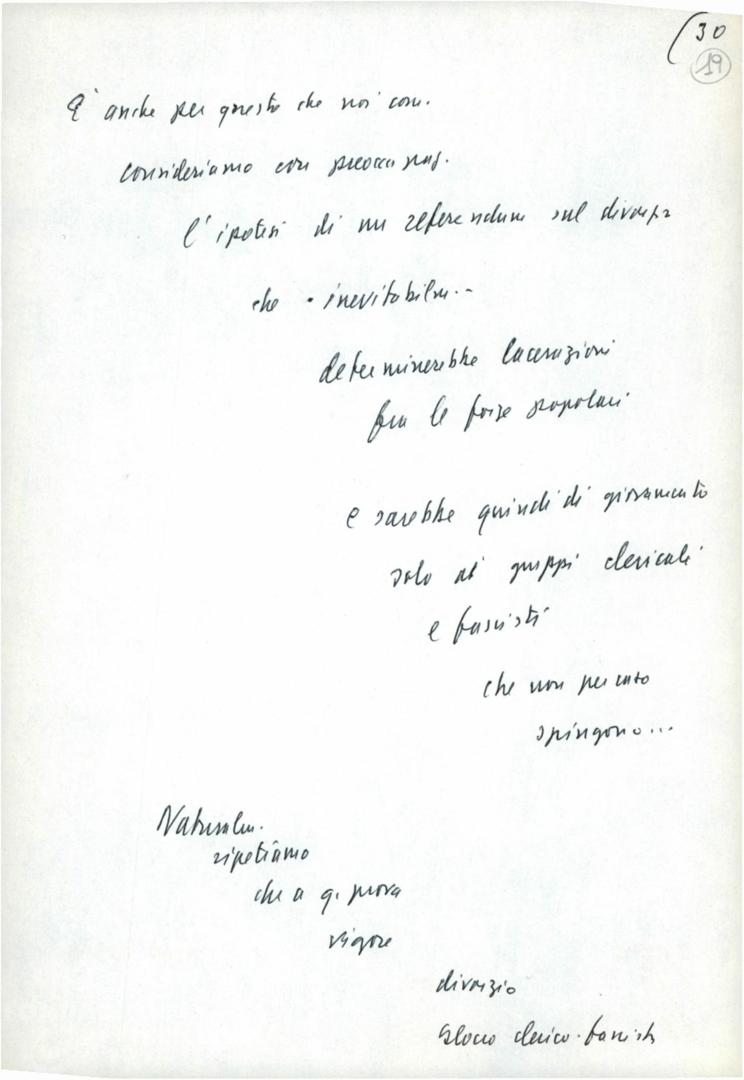 (30
19
E' anche per questo che noi com.
consideriamo con preoccupaz.
l'ipotesi di un referendum sul divorzio
che inevitabilm..
determinerebbe lacerazioni
fra le forze popolari
e sarebbe quindi di giovamento
solo ai gruppi clericali
e fascisti
che non per caso
spingono...
Naturalm.
ripetiamo
che a q. prova
vigore
divorzio
blocco clerico-fascista